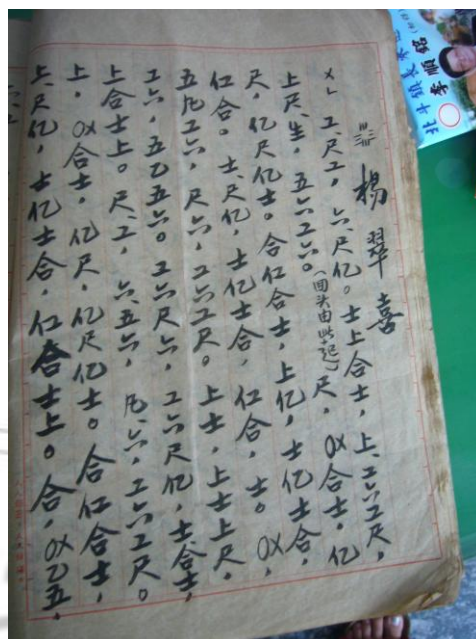 楊翠喜
工、尺工,六、尺亿。士上合士,上、工六工尺,
上尺、生,五六工六。(回头由此起)尺,OX合士,亿
尺,亿尺亿士。合仜合士,上亿,士亿士合,
仜合。士、尺亿,士亿士合,仜合,士。OX,
五凡工六,尺六,工六工尺。上士,上士上尺,
工六,五乙五六。工六尺六,工六尺亿,士合士,
上合士上。尺、工,六、五六,凡、六,工六工尺。
上,OX合士,亿尺,亿尺亿士。合仜合士,
上、尺亿,士亿士合,仜合士上。合,OX乙五,
北斗鎮長
李順銘